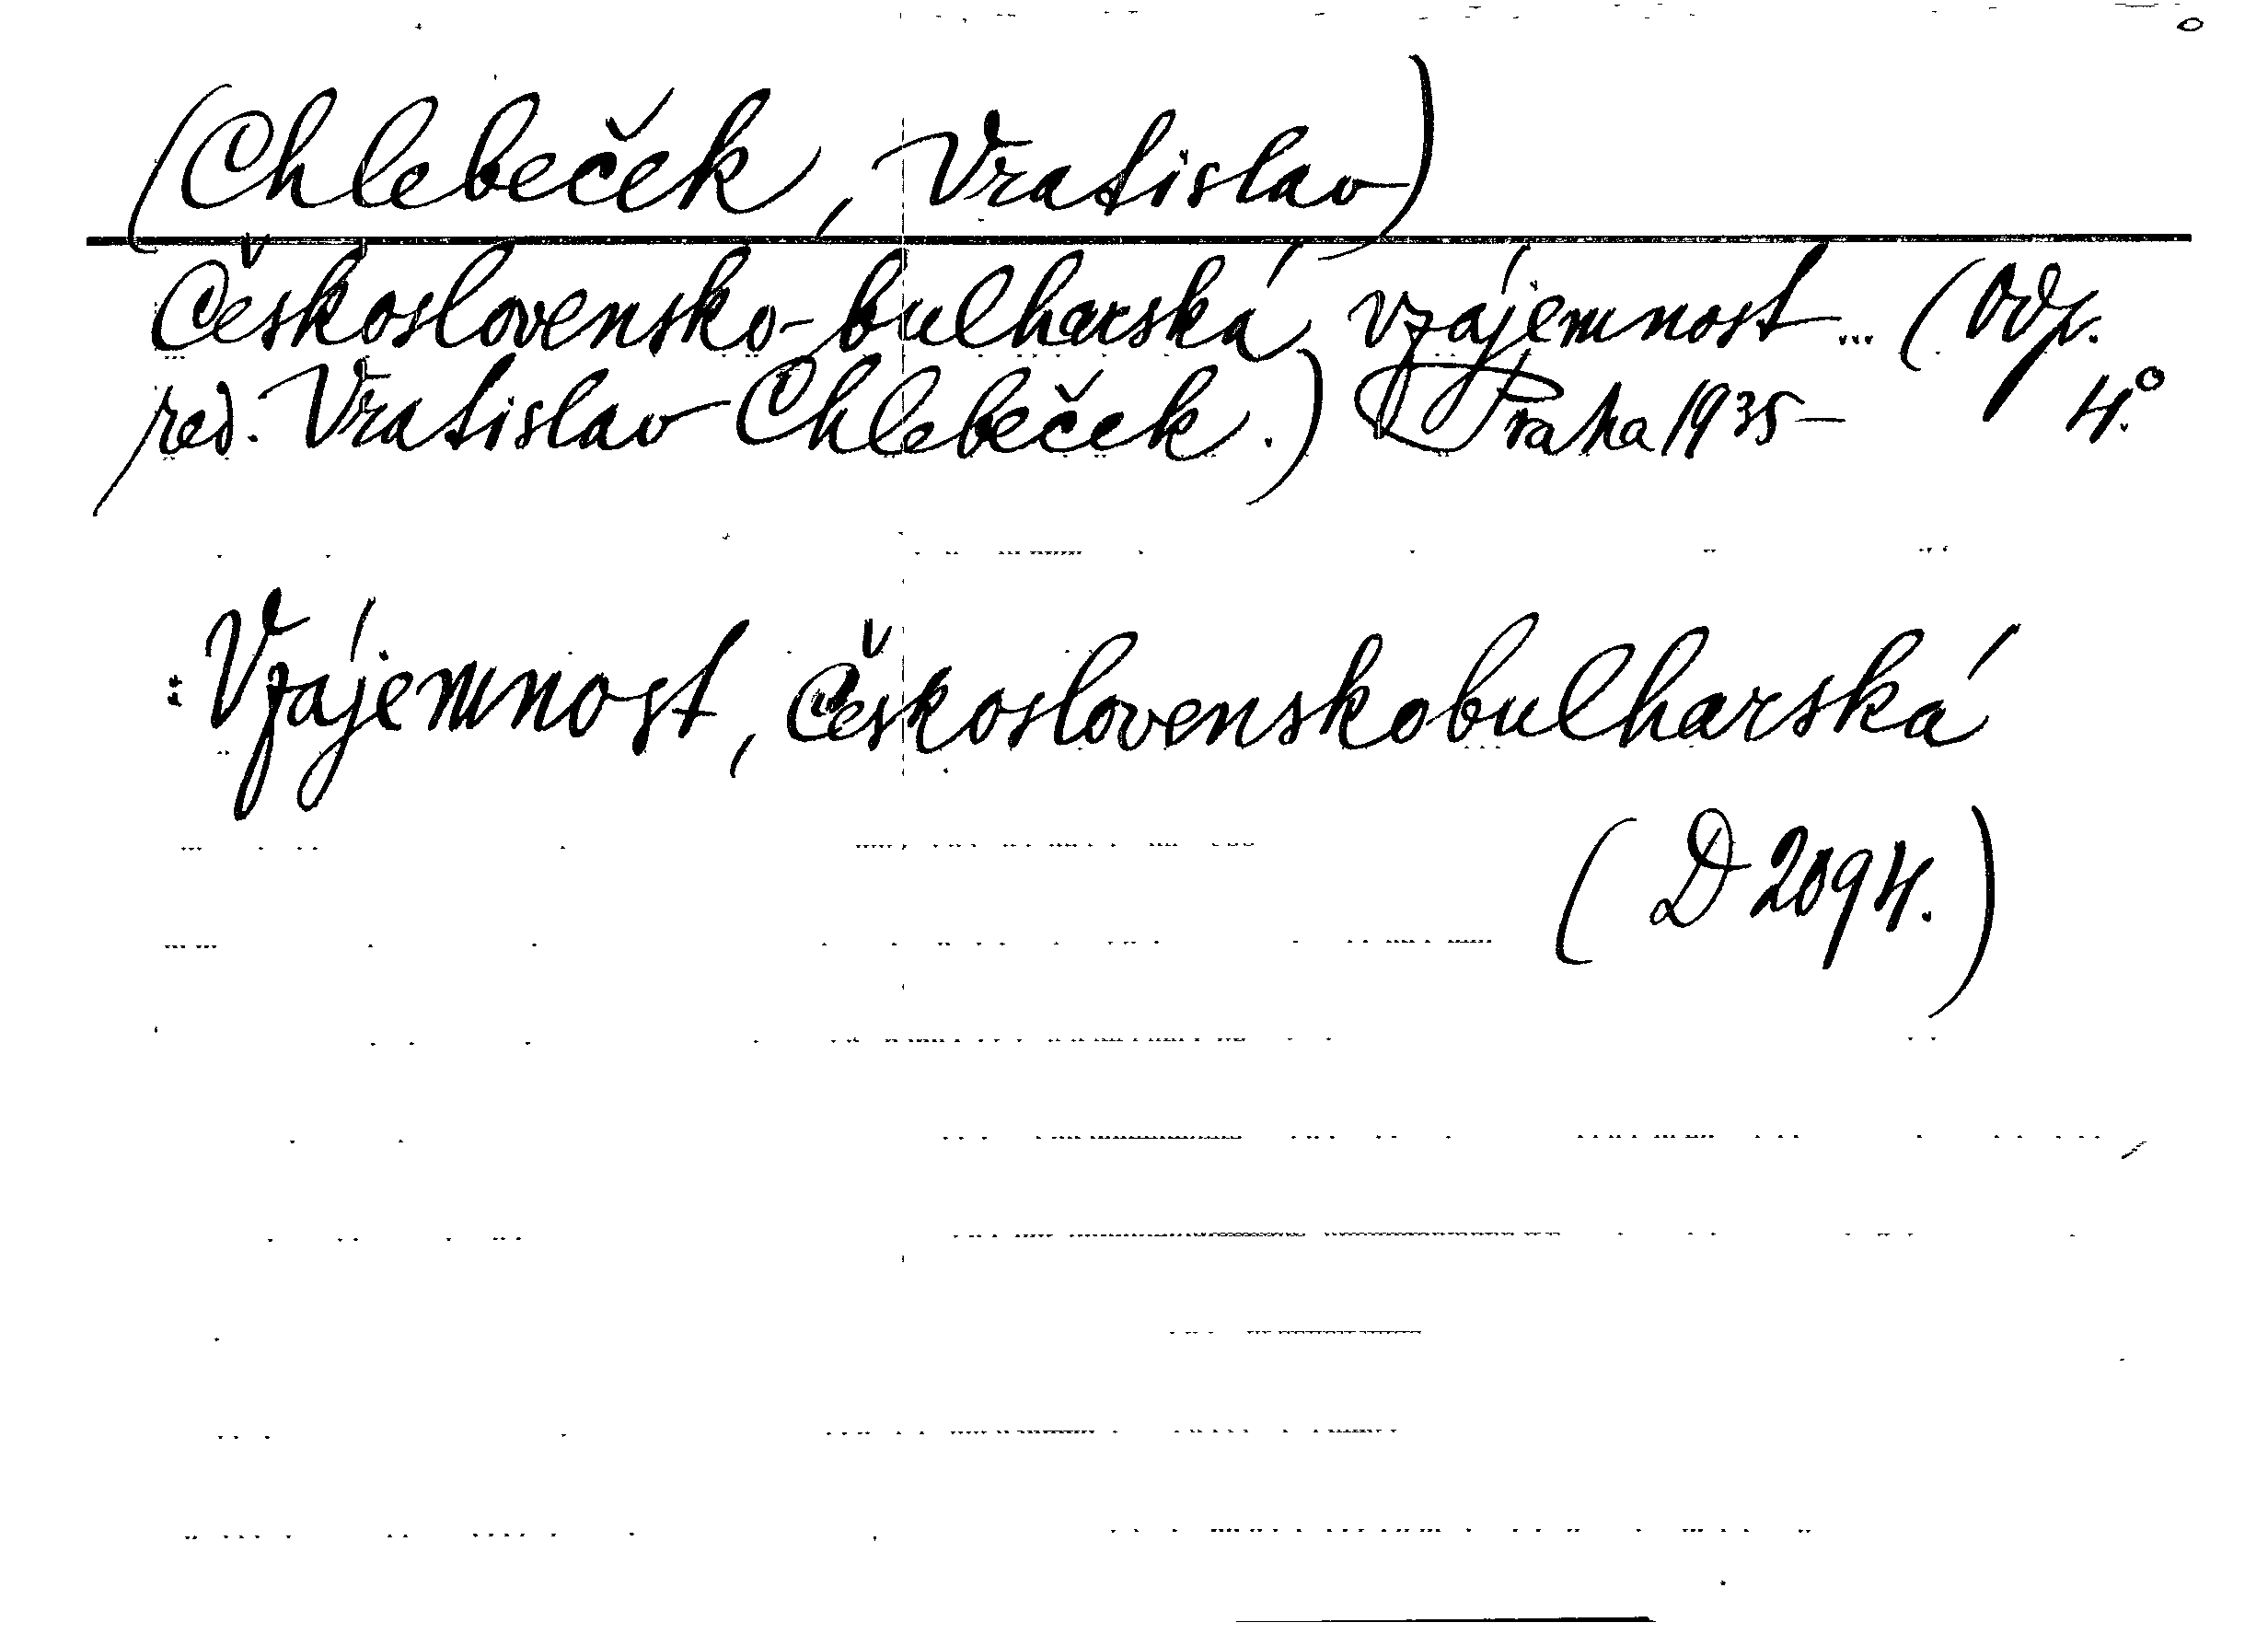 (Chlebeček, Vratislav)
Československo-bulharská vzájemnost... (Odp.
red. Vratislav Chlebeček.) Praha 1935- 4°.
: Vzájemnost, Československobulharská
(D 2094.)